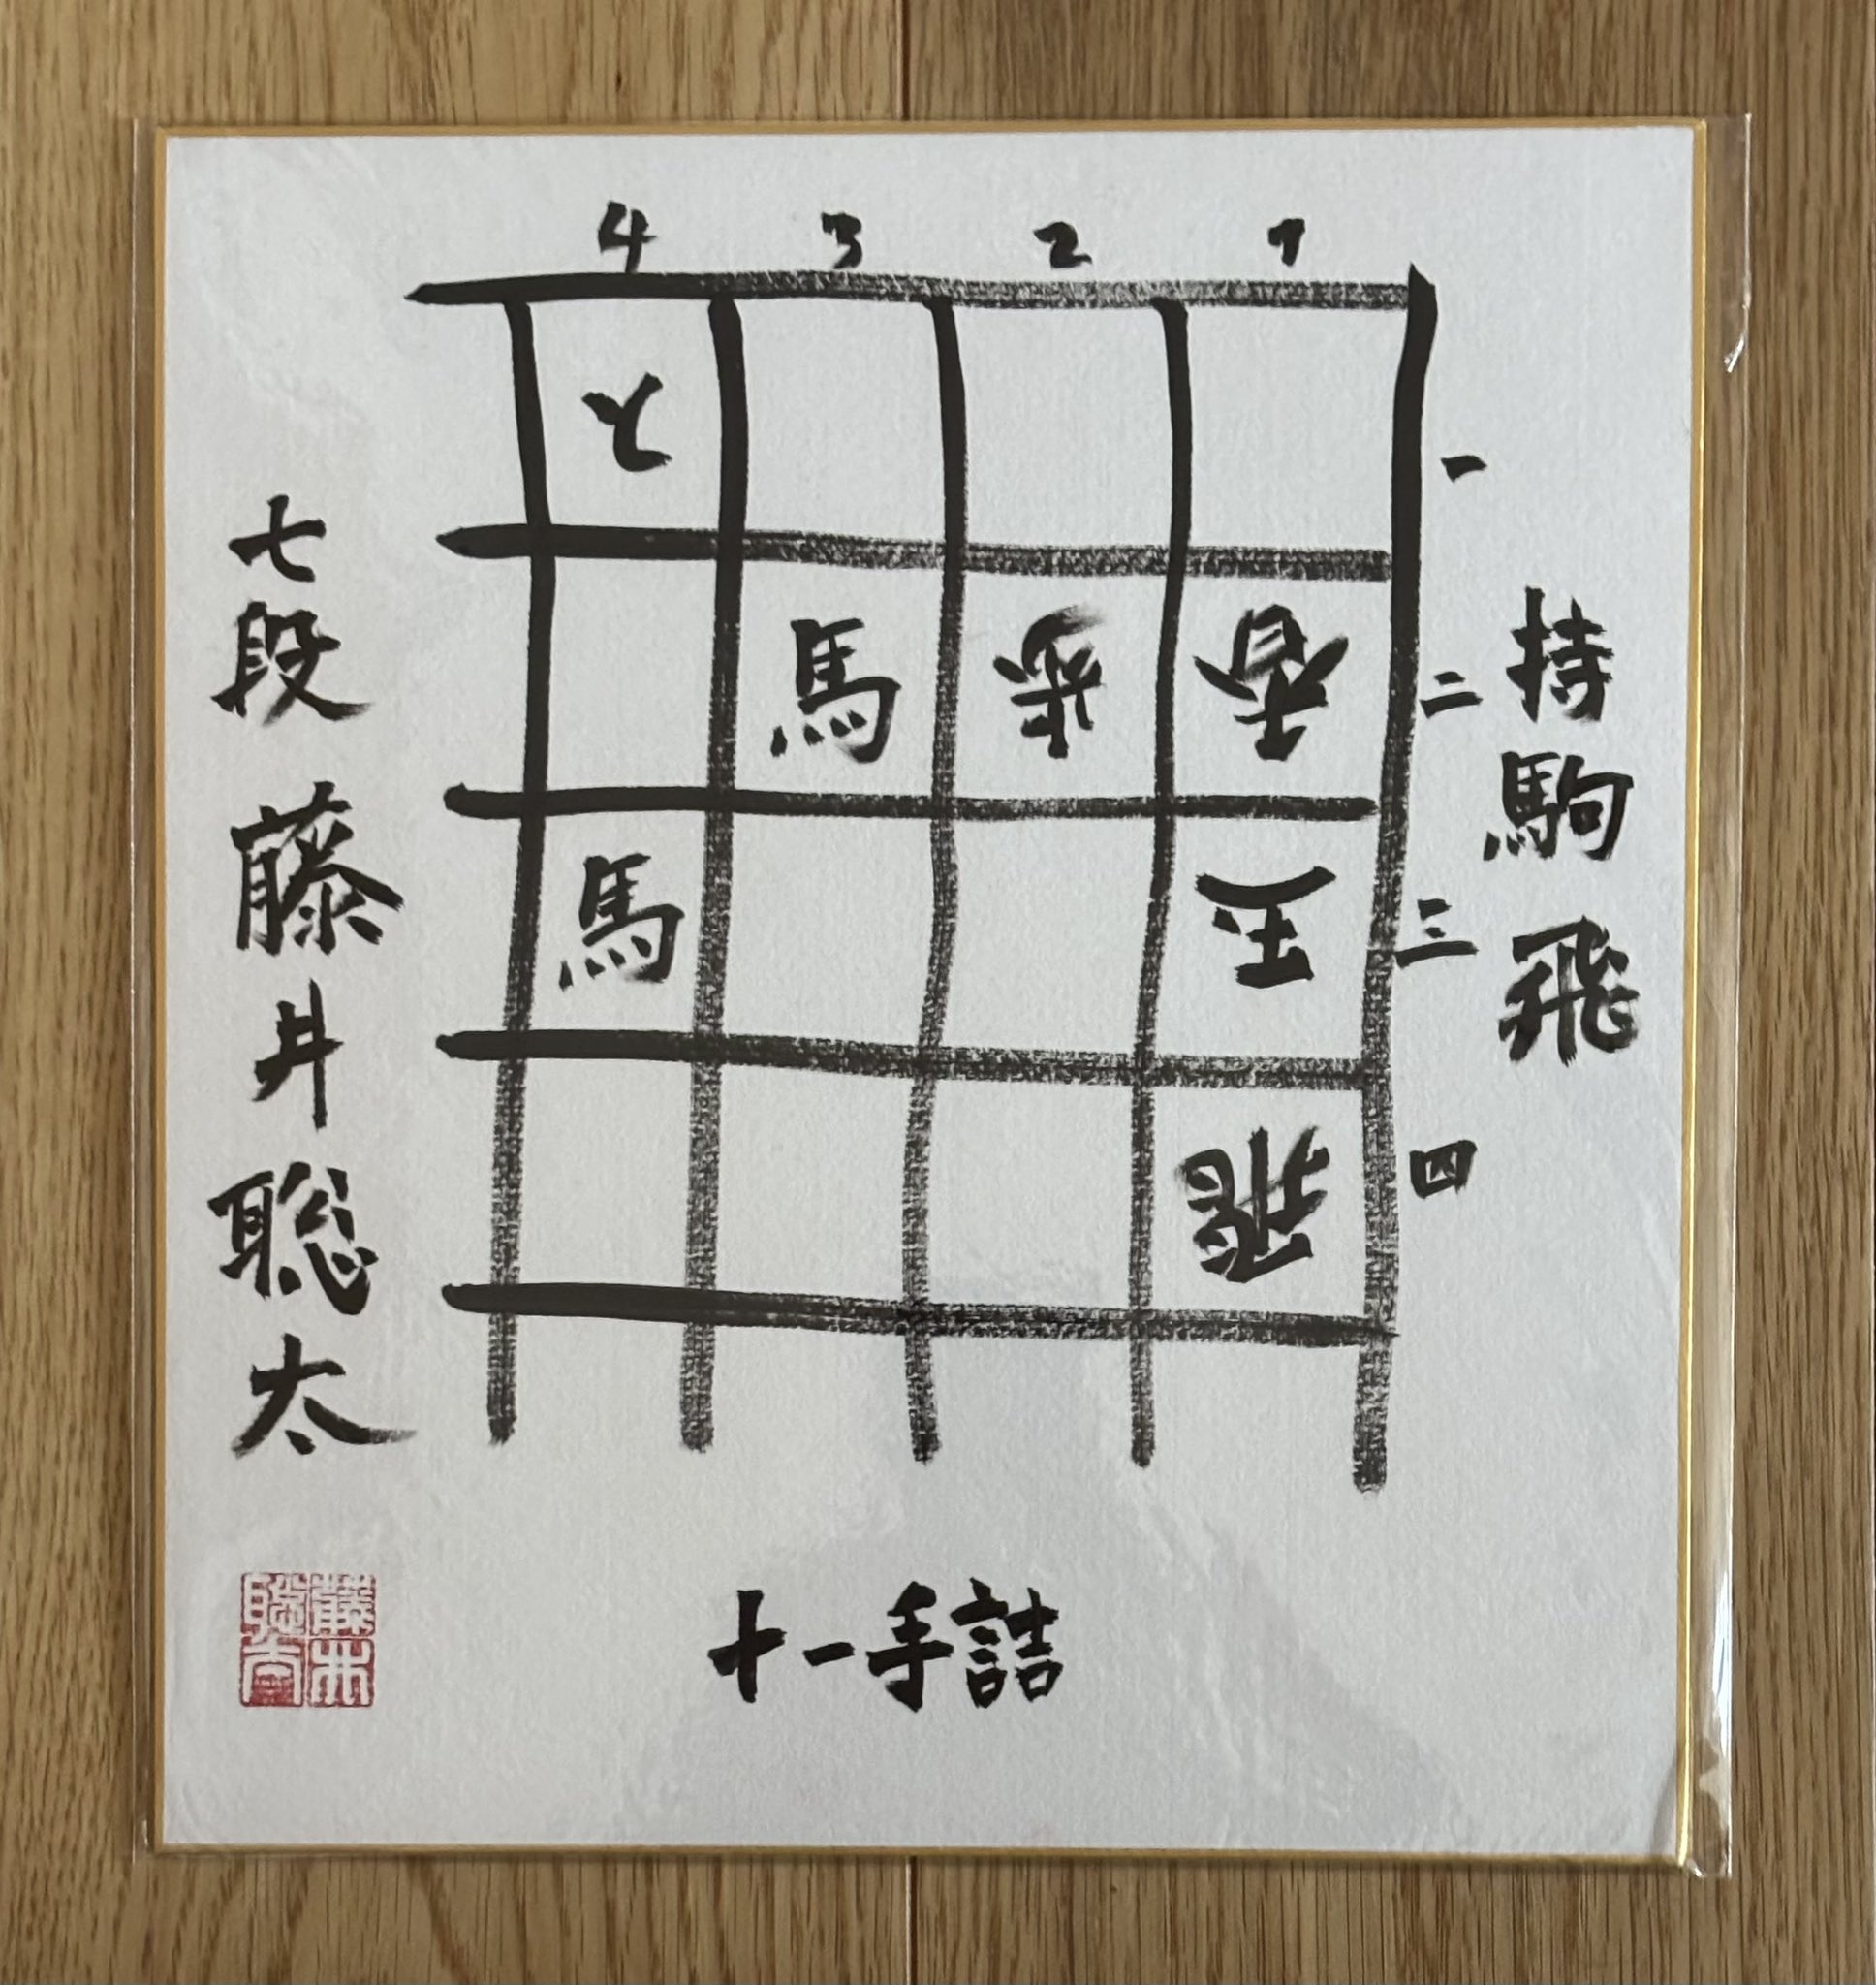 4 3 2 1
と
一
馬 歩 香
二
馬 玉
三
飛
四
持駒 飛
七段 藤井聡太
十一手詰
藤井聡太